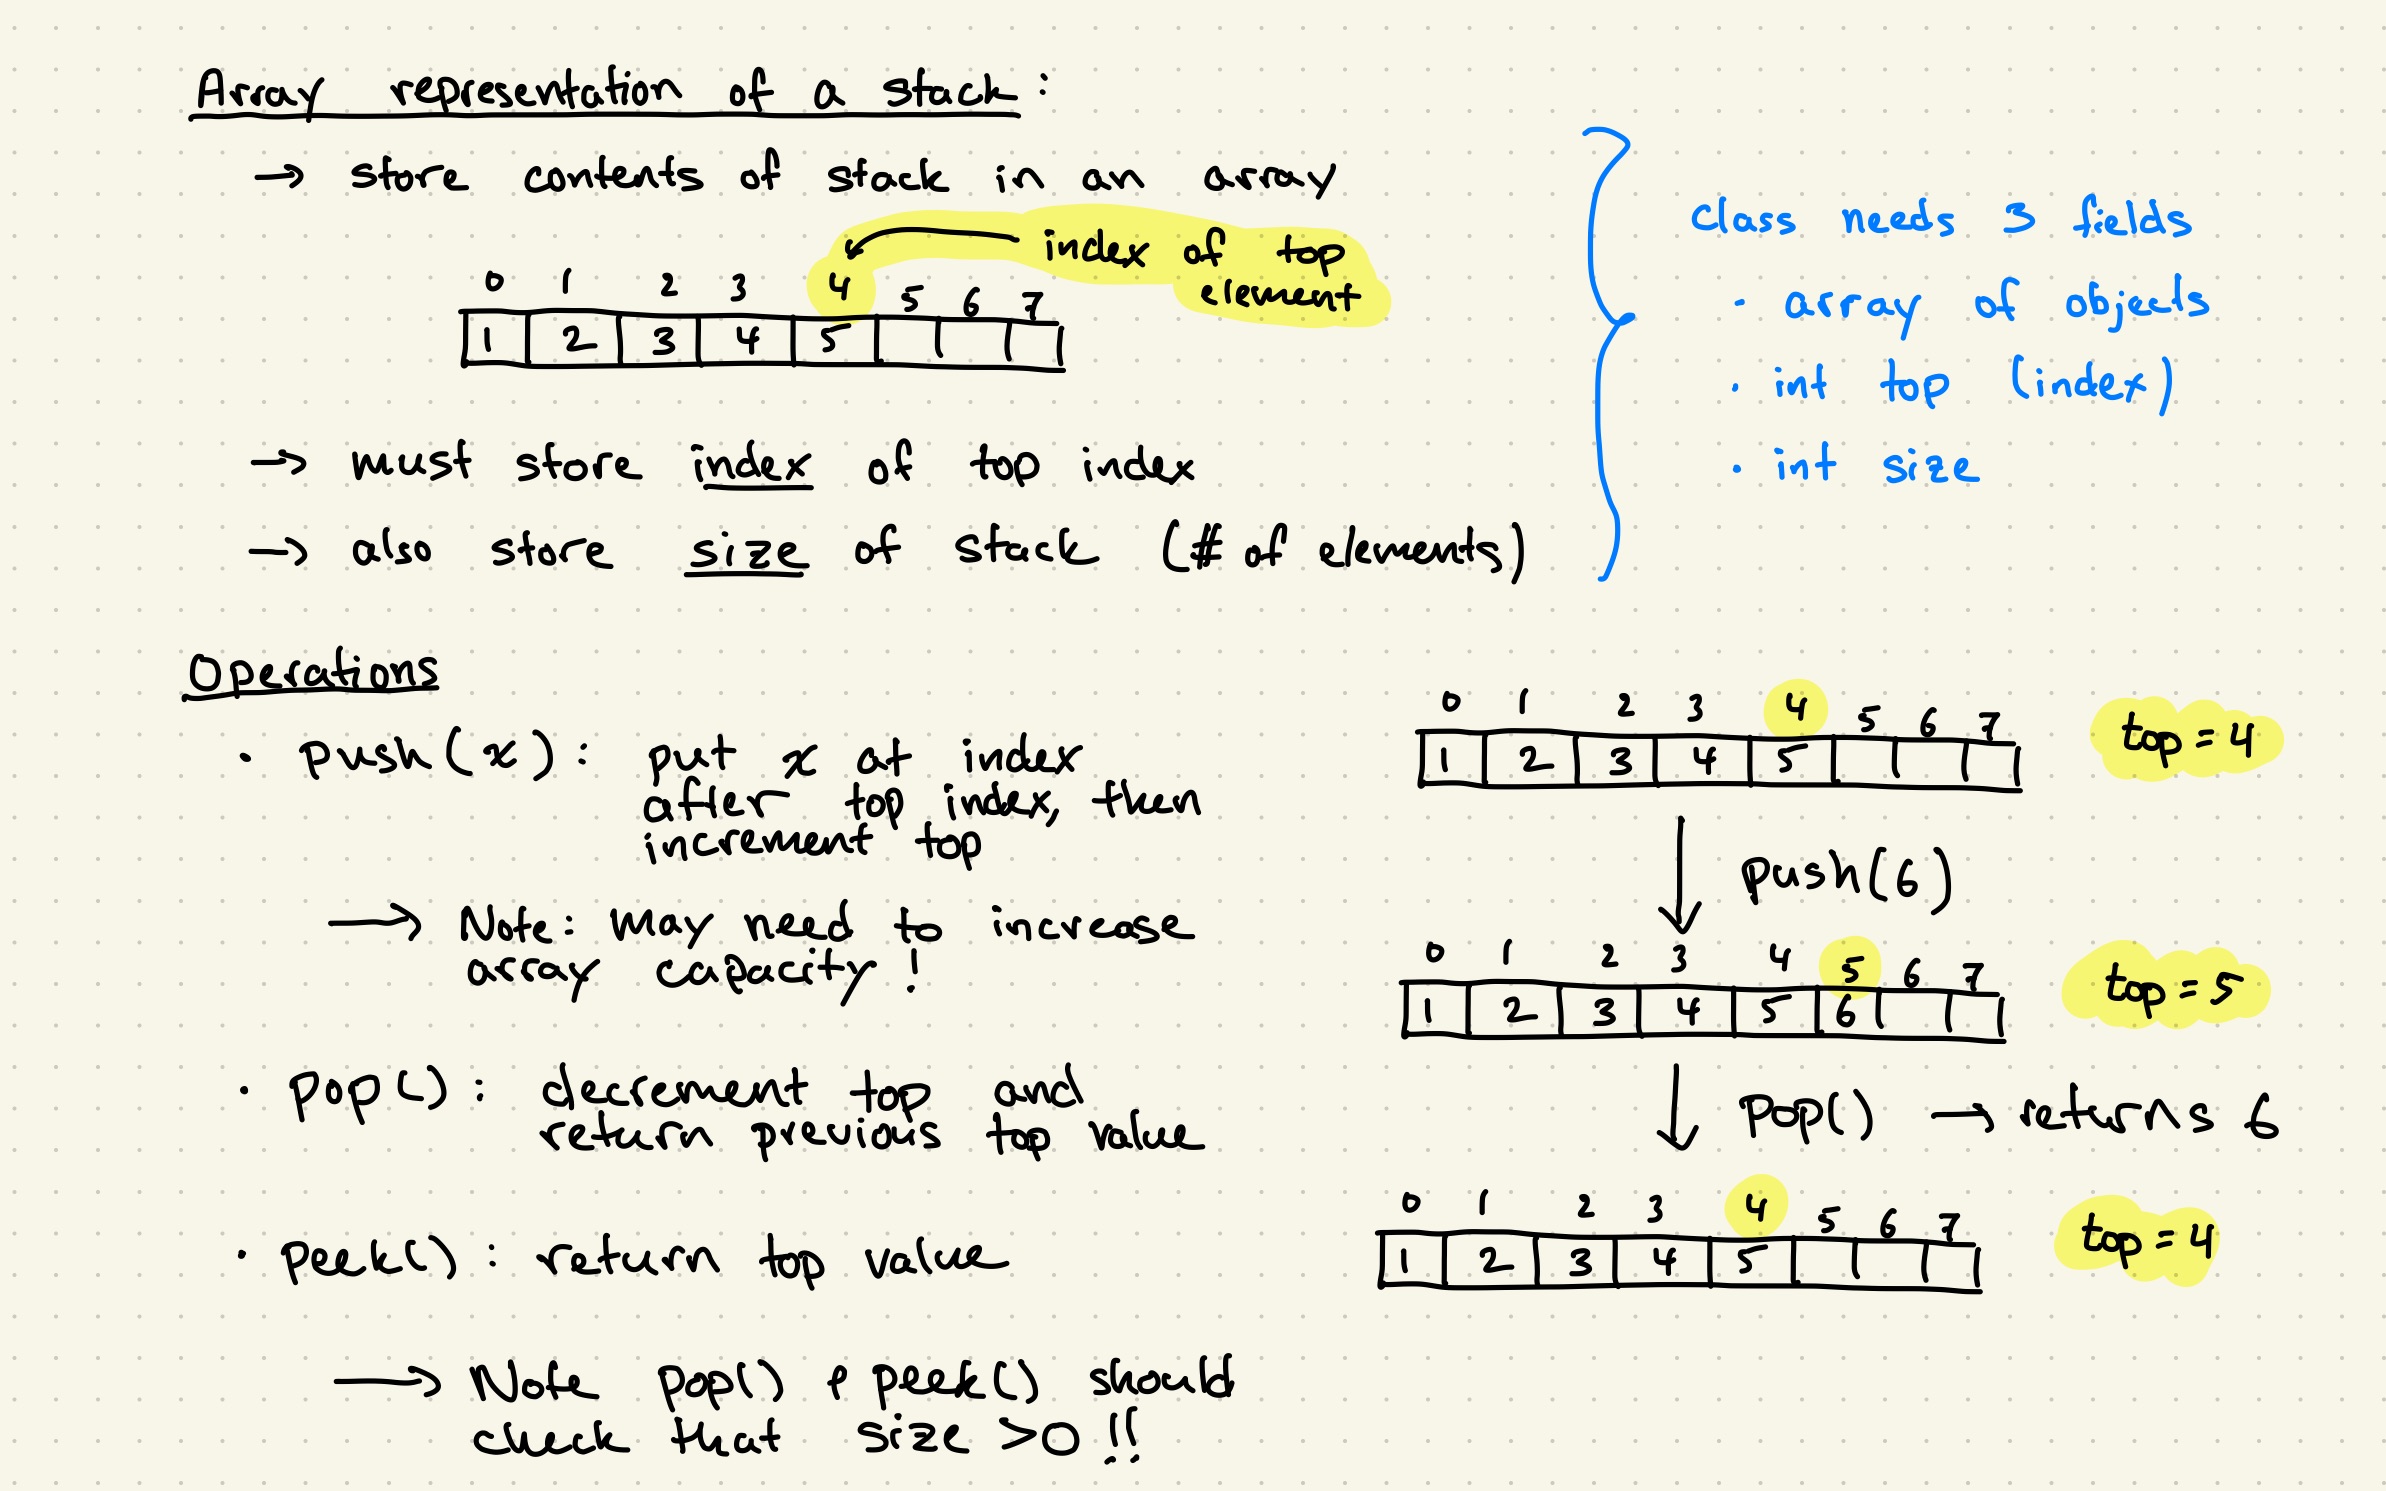 Array representation of a stack:
→ store contents of stack in an array
index of top
element
0 1 2 3 4 5 6 7
1 2 3 4 5
→ must store index of top index
→ also store size of stack (# of elements)
class needs 3 fields
· array of objects
· int top (index)
· int size
Operations
· push(x): put x at index
after top index, then
increment top
→ Note: may need to increase
array capacity!
· pop(): decrement top and
return previous top value
· peek(): return top value
→ Note pop() & peek() should
check that size >0 !!
0 1 2 3 4 5 6 7
1 2 3 4 5
top = 4
push(6)
0 1 2 3 4 5 6 7
1 2 3 4 5 6
top = 5
pop() → returns 6
0 1 2 3 4 5 6 7
1 2 3 4 5
top = 4